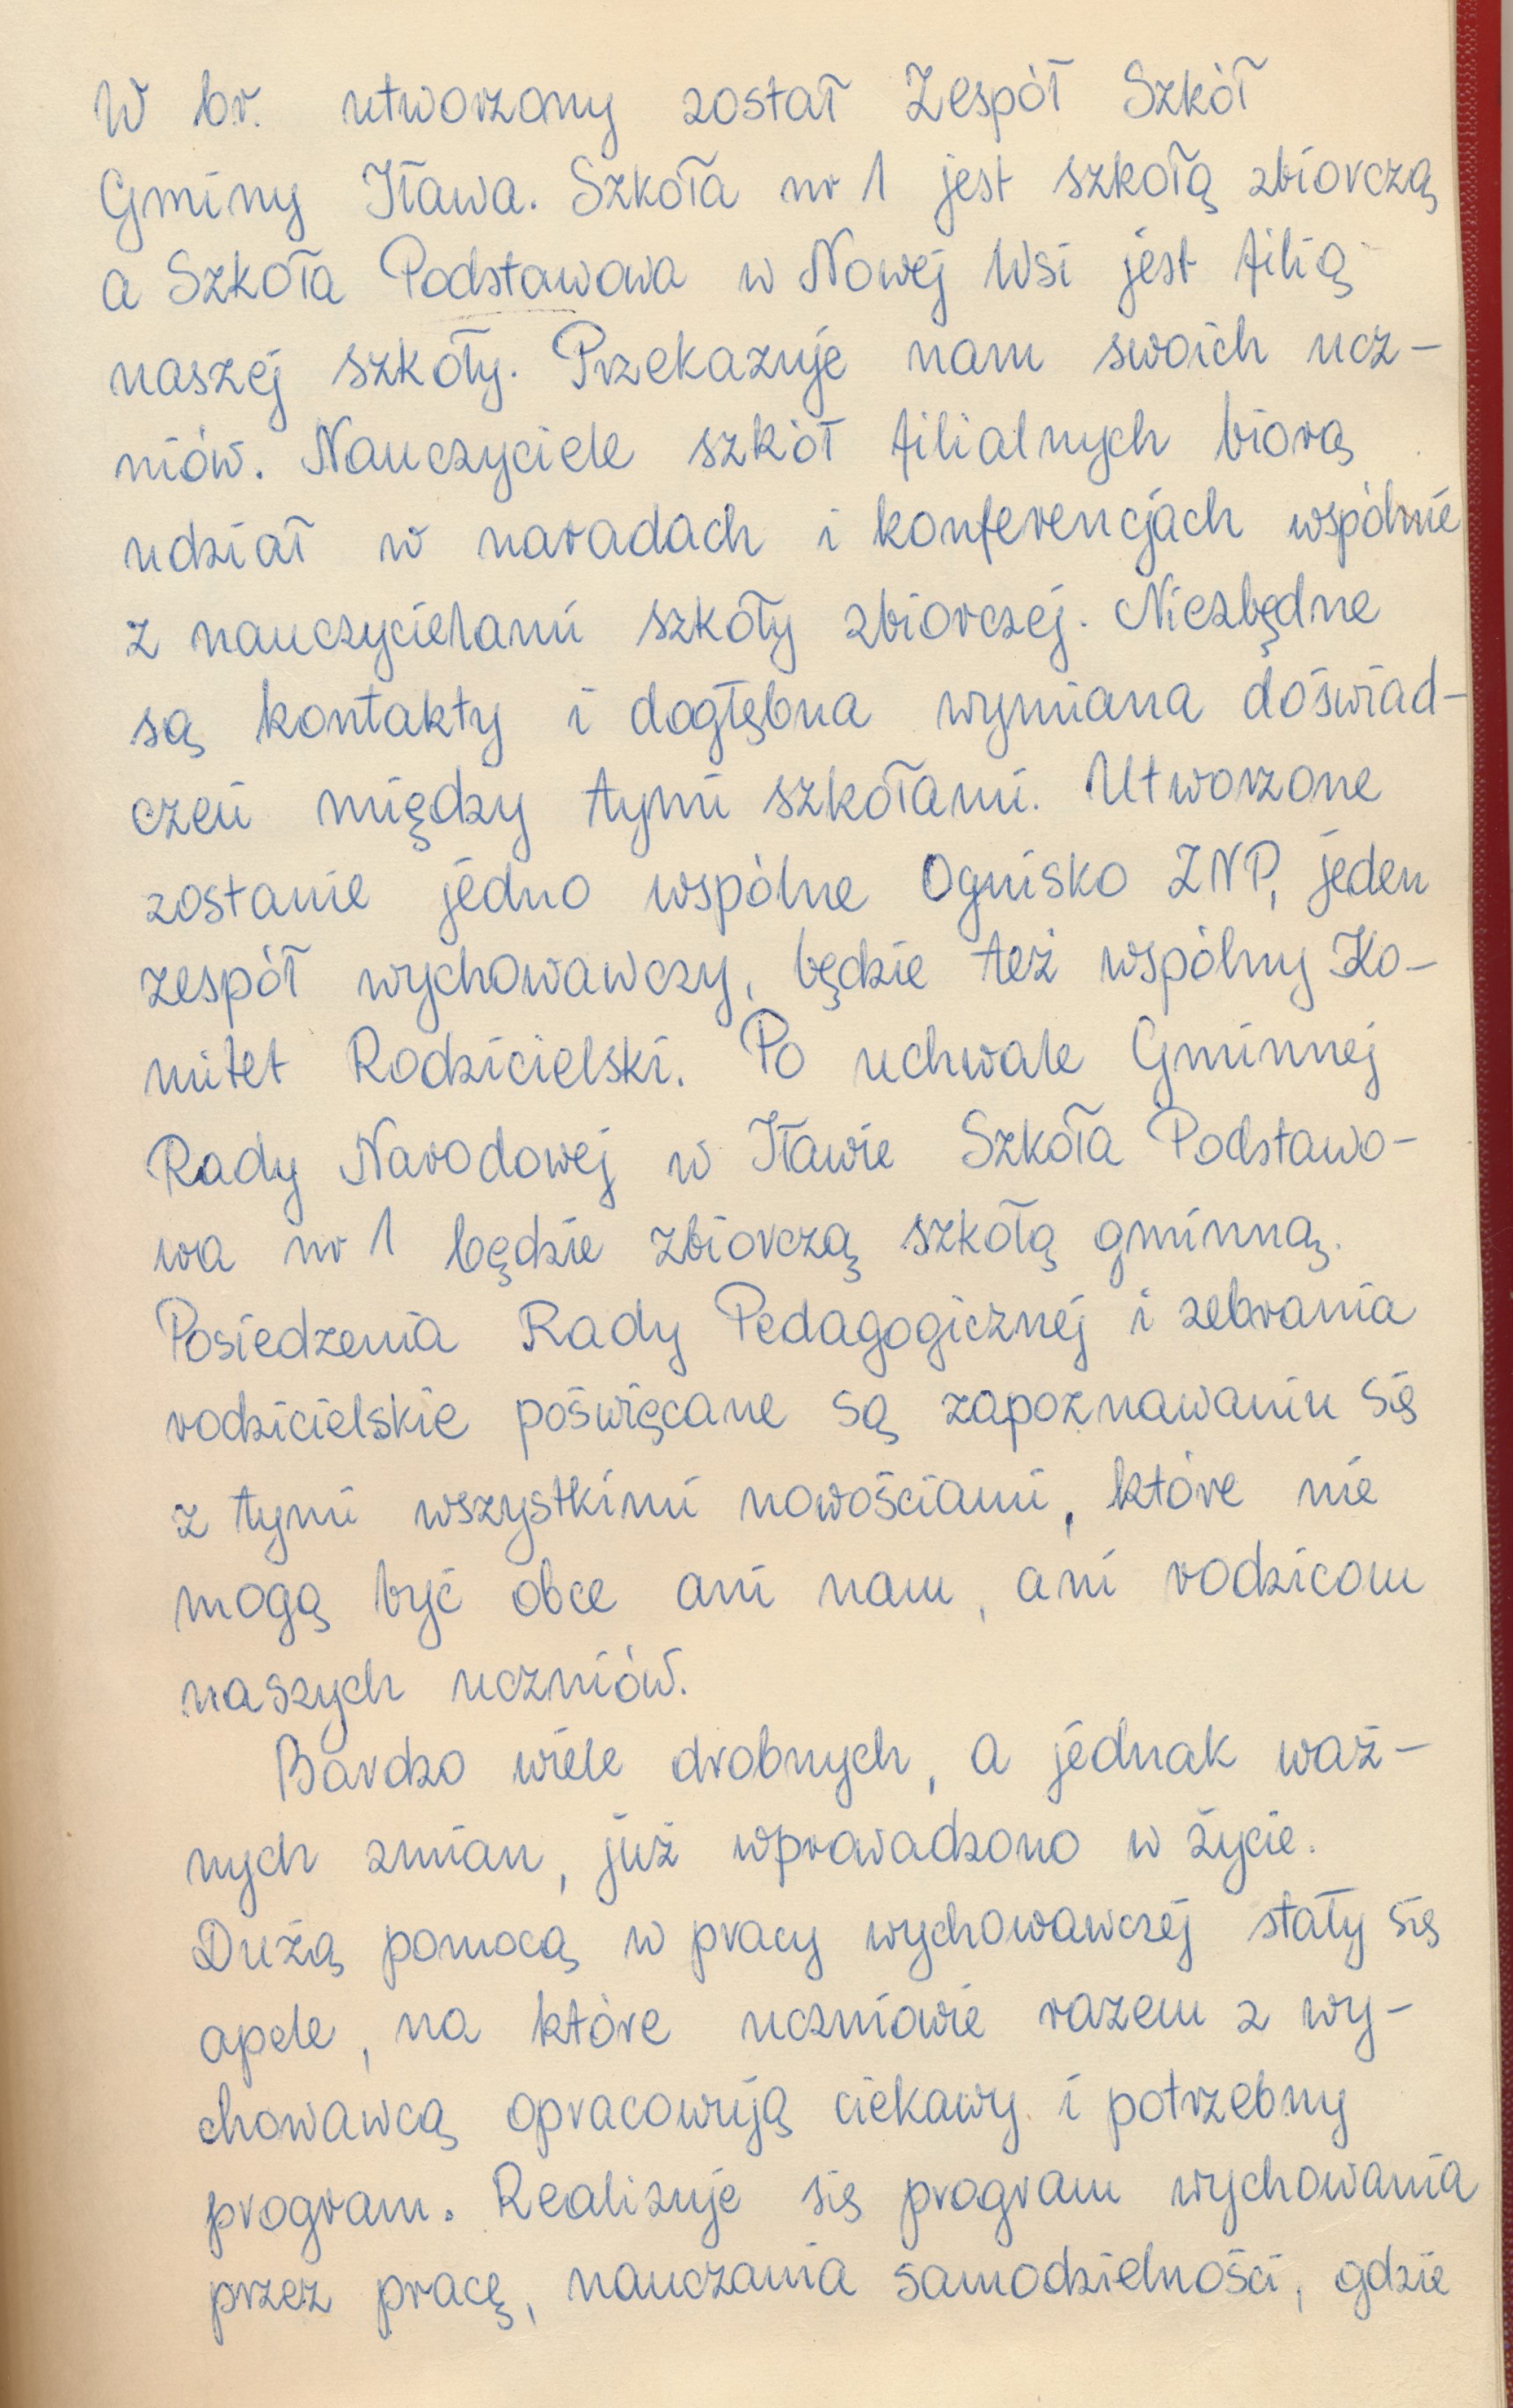 W br. utworzony został Zespół Szkół
Gminy Iława. Szkoła nr 1 jest szkołą zbiorczą
a Szkoła Podstawowa w Nowej Wsi jest filią
naszej szkoły. Przekazuje nam swoich ucz-
niów. Nauczyciele szkół filialnych biorą
udział w naradach i konferencjach wspólnie
z nauczycielami szkoły zbiorczej. Niezbędne
są kontakty i dogłębna wymiana doświad-
czeń między tymi szkołami. Utworzone
zostanie jedno wspólne Ognisko ZNP, jeden
zespół wychowawczy, będzie też wspólny Ko-
mitet Rodzicielski. Po uchwale Gminnej
Rady Narodowej w Iławie Szkoła Podstawo-
wa nr 1 będzie zbiorczą szkołą gminną.
Posiedzenia Rady Pedagogicznej i zebrania
rodzicielskie poświęcane są zapoznawaniu się
z tymi wszystkimi nowościami, które nie
mogą być obce ani nam, ani rodzicom
naszych uczniów.
Bardzo wiele drobnych, a jednak waż-
nych zmian, już wprowadzono w życie.
Dużą pomocą w pracy wychowawczej stały się
apele, na które uczniowie razem z wy-
chowawcą opracowują ciekawy i potrzebny
program. Realizuje się program wychowania
przez pracę, nauczania samodzielności, gdzie